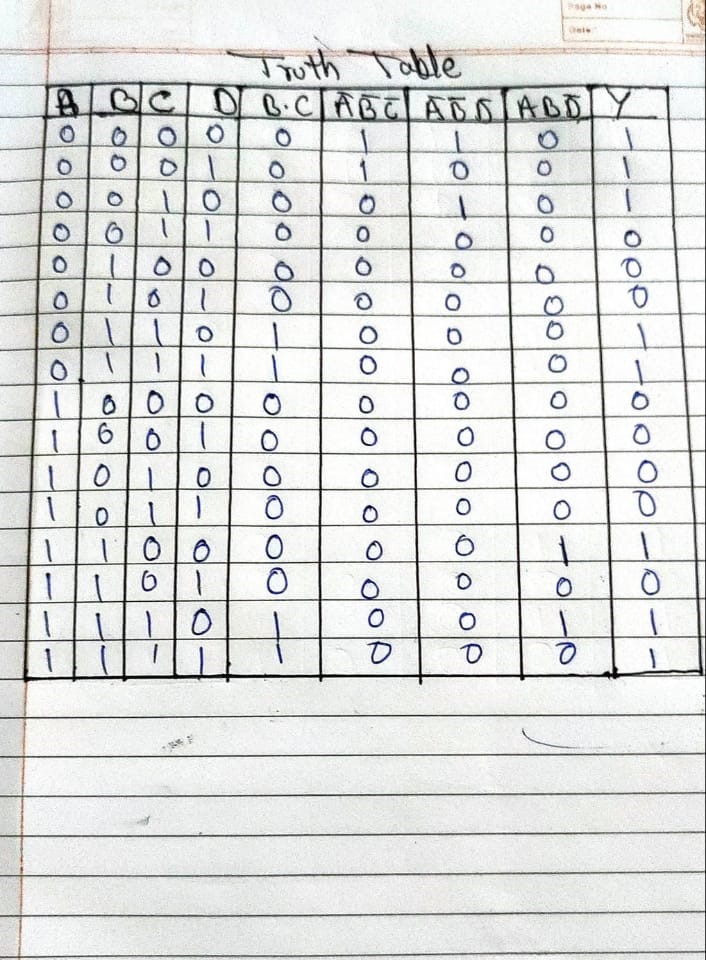 Page No
Date
Truth Table
A B C D B·C A̅B̅C̅ A̅B̅D̅ ABD̅ Y
0 0 0 0 0 1 1 0 1
0 0 0 1 0 1 0 0 1
0 0 1 0 0 0 1 0 1
0 0 1 1 0 0 0 0 0
0 1 0 0 0 0 0 0 0
0 1 0 1 0 0 0 0 0
0 1 1 0 1 0 0 0 1
0 1 1 1 1 0 0 0 1
1 0 0 0 0 0 0 0 0
1 0 0 1 0 0 0 0 0
1 0 1 0 0 0 0 0 0
1 0 1 1 0 0 0 0 0
1 1 0 0 0 0 0 1 1
1 1 0 1 0 0 0 0 0
1 1 1 0 1 0 0 1 1
1 1 1 1 1 0 0 0 1